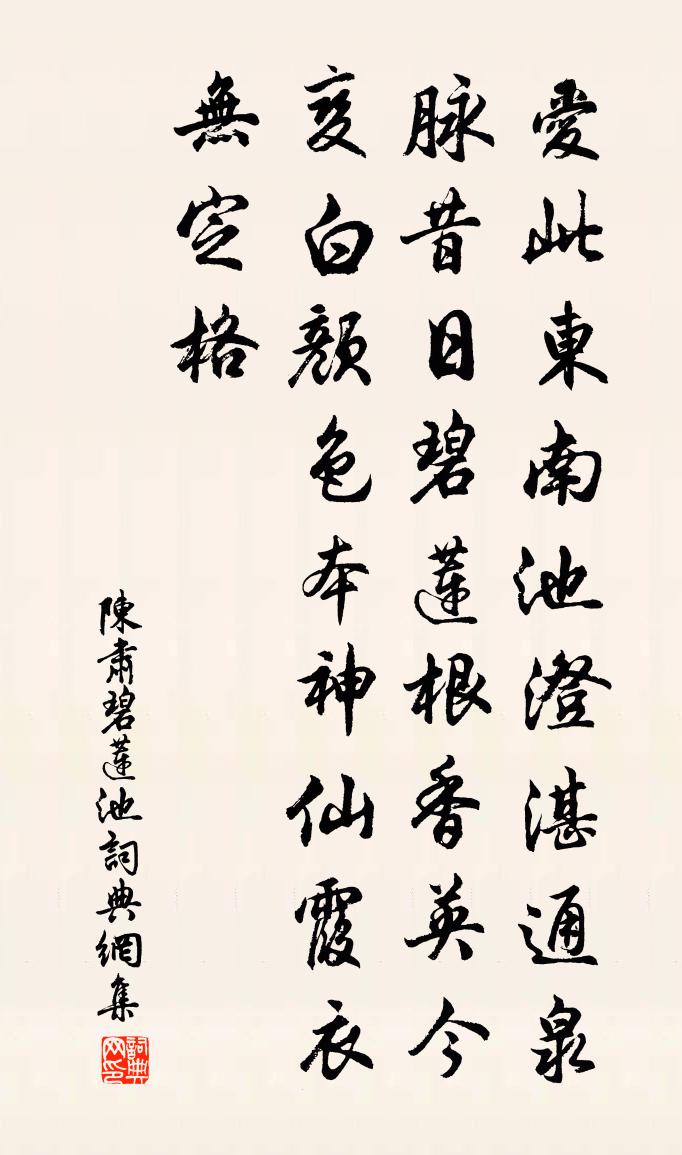 愛此東南池澄湛通泉
脉昔日碧蓮根香英今
变白顏色本神仙霞衣
無定格
陳肅碧蓮池詞典網集
詞典
网印